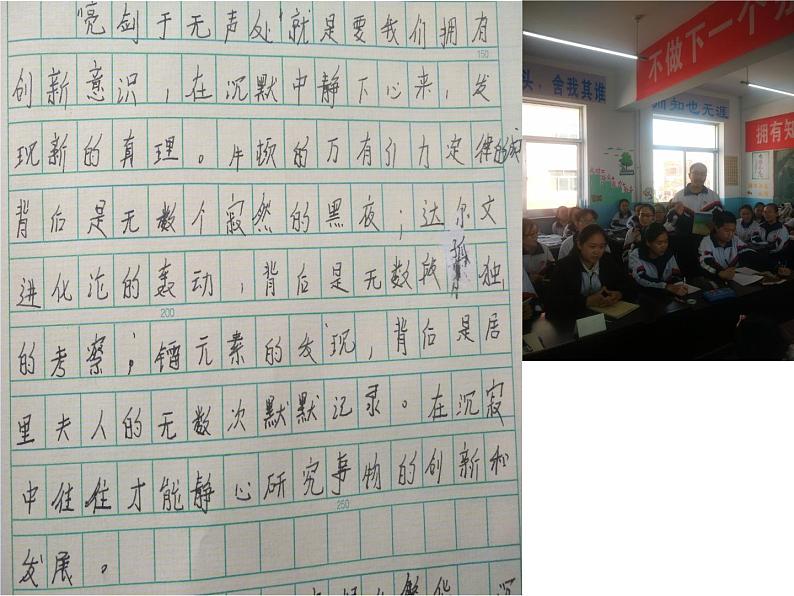 亮剑于无声处'就是要我们拥有
150
创新意识，在沉默中静下心来，发
现新的真理。牛顿的万有引力定律的
背后是无数个寂然的黑夜；达尔文
进化论的轰动，背后是无数段孤独
200
的考察，镭元素的发现，背后是居
里夫人的无数次默默记录。在沉寂
中往往才能静心研究事物的创新和
250
发展。
不做下一个
头，舍我其谁
知也无涯
拥有知